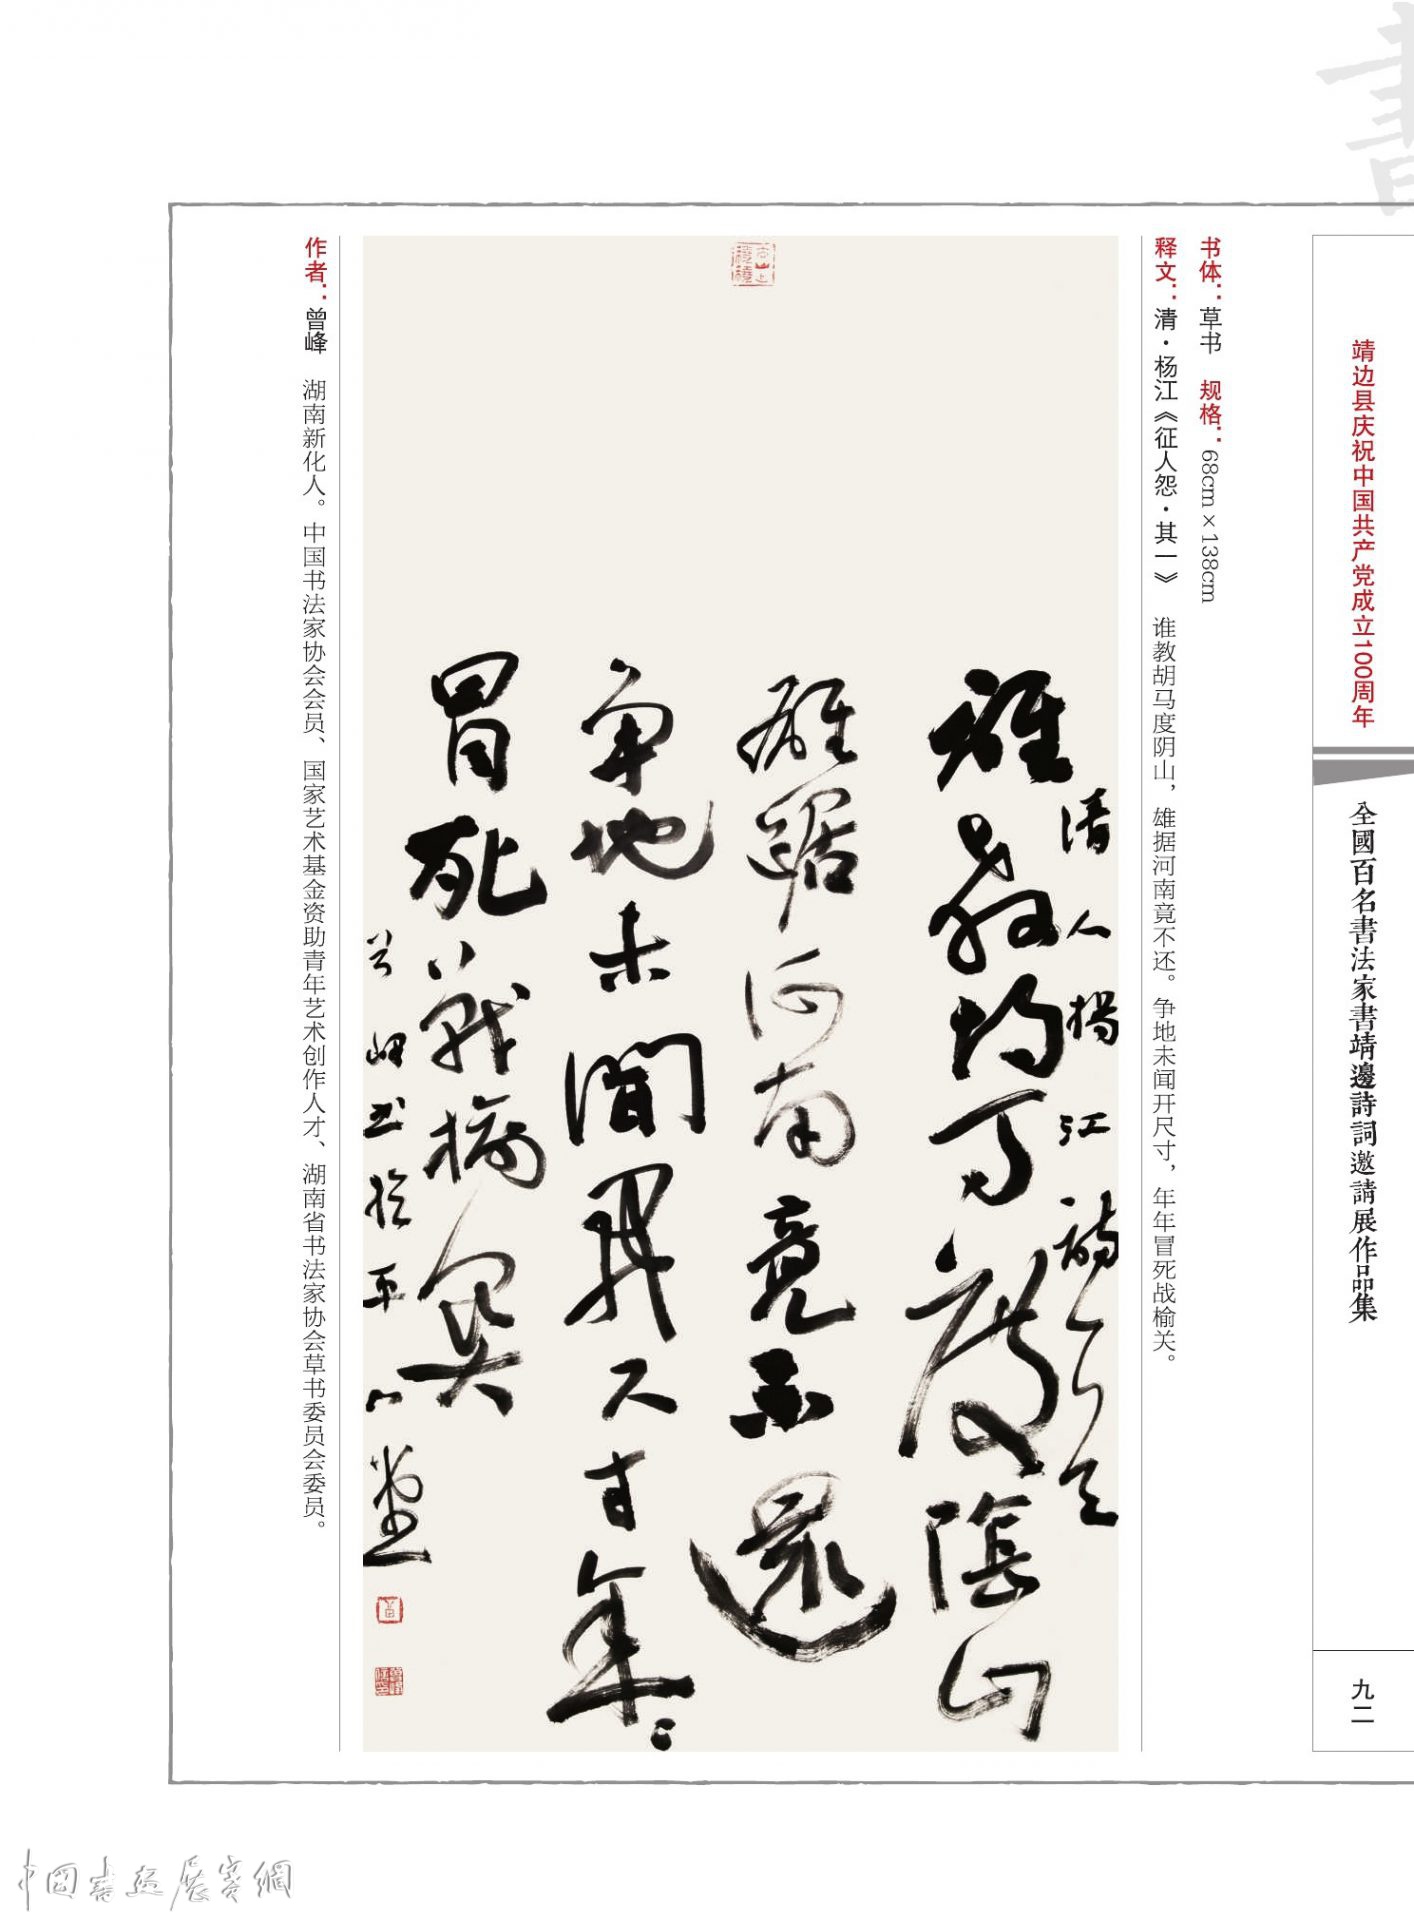 書
靖边县庆祝中国共产党成立100周年
全國百名書法家書靖邊詩詞邀請展作品集
九二
书体：草书 规格：68cm×138cm
释文：清·杨江《征人怨·其一》 谁教胡马度阴山，雄据河南竟不还。争地未闻开尺寸，年年冒死战榆关。
清人楊江詩
誰教胡馬度陰山
雄踞河南竟不還
争地未聞開尺寸年々
冒死戰榆關
曾峰書於平堂
作者：曾峰 湖南新化人。中国书法家协会会员、国家艺术基金资助青年艺术创作人才、湖南省书法家协会草书委员会委员。
中國書畫展賽網